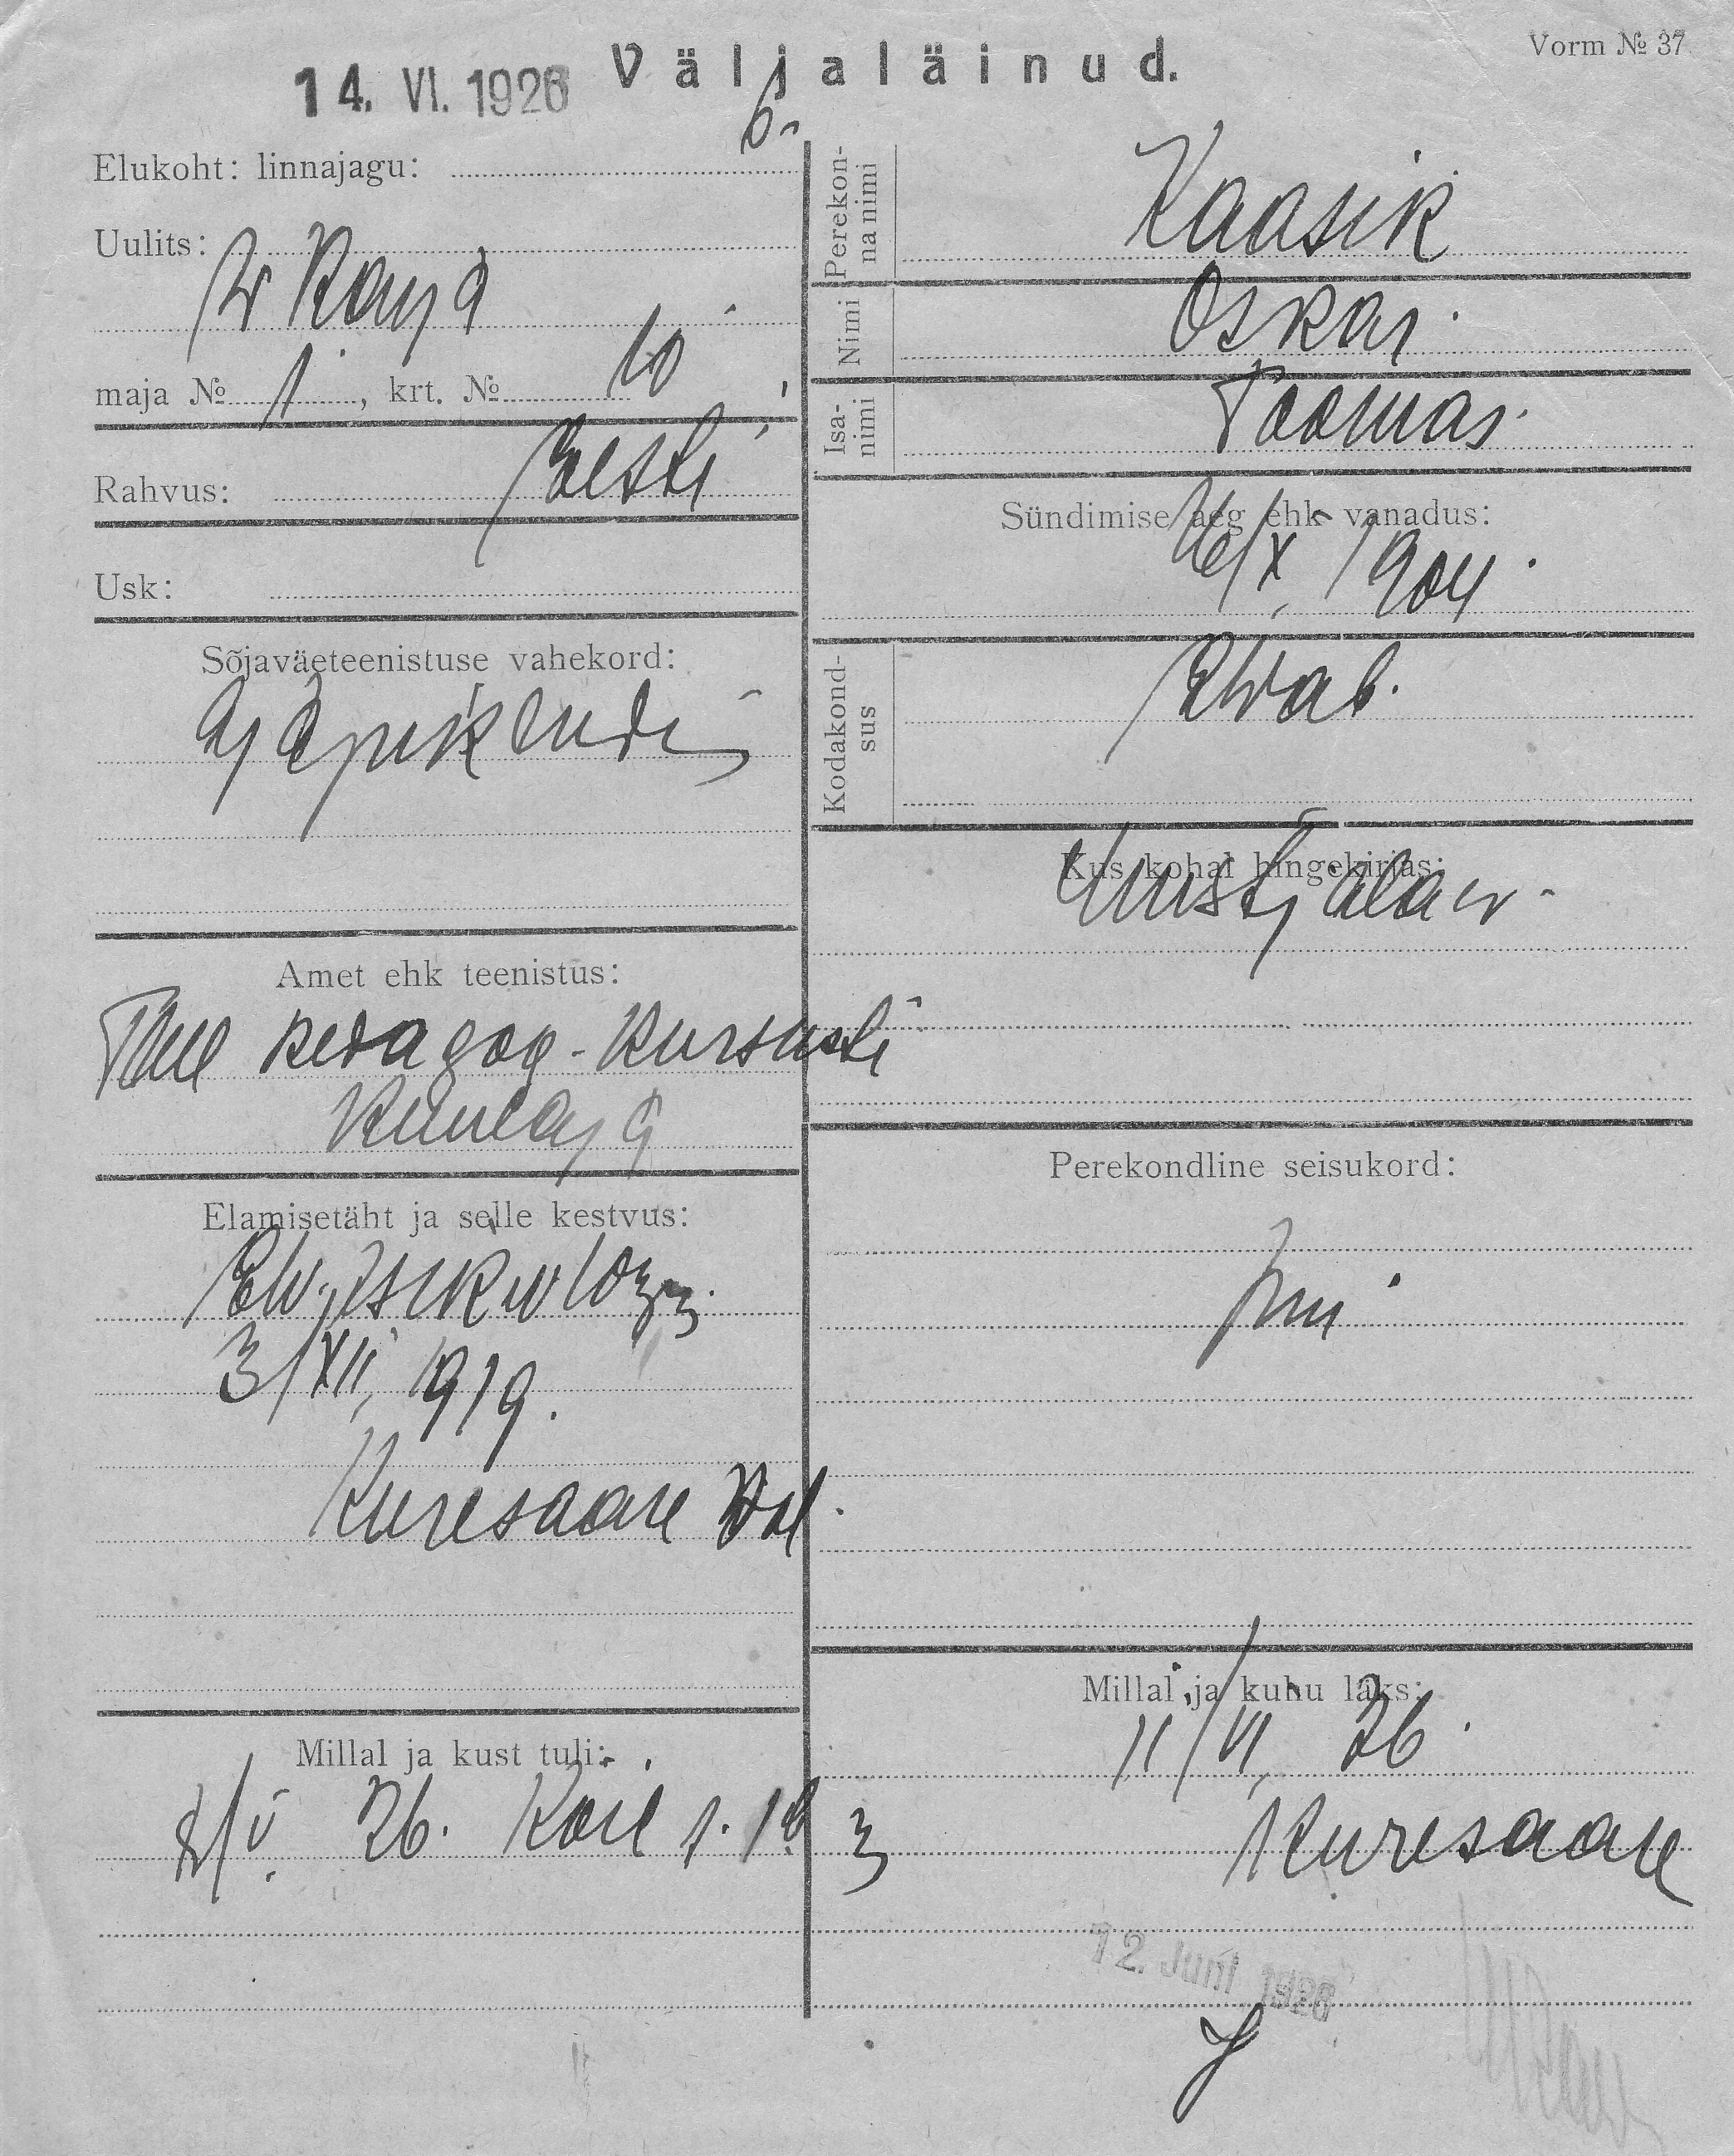 Vorm № 37
14. VI. 1926 Väljaläinud.
Elukoht: linnajagu: 6.
Uulits:
maja № 1, krt. № 10
Rahvus: Eesti
Usk:
Sõjaväeteenistuse vahekord:
Ajapikendus
Amet ehk teenistus:
Pedagog. Kursusti
Elamisetäht ja selle kestvus:
3/XII, 1919.
Kuresaare
Millal ja kust tuli:
/V. 26.
Perekonnanimi
Kaasik
Nimi
Oskar
Isanimi
Toomas
Sündimise aeg ehk vanadus:
/X, 1904.
Kodakondsus
E. Wab.
Kus kohal hingekirjas:
Mustjala w.
Perekondline seisukord:
Millal ja kuhu läks:
11/VI, 26.
Kuresaare
12. Juni 1926